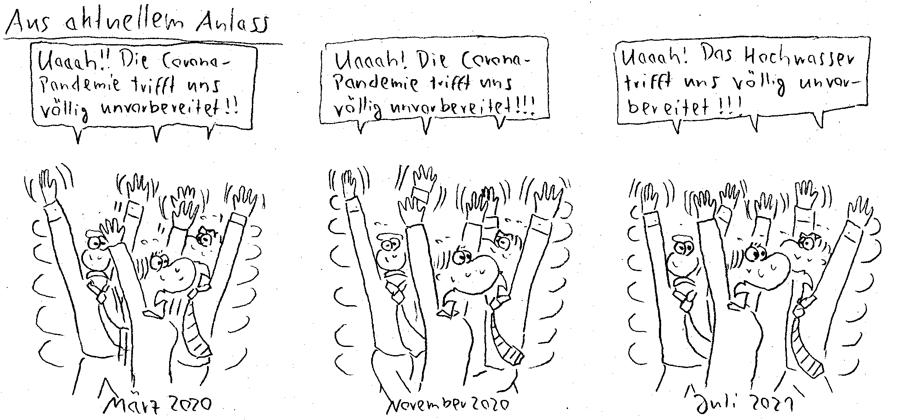 Aus aktuellem Anlass
Uaaah!! Die Corona-
Pandemie trifft uns
völlig unvorbereitet!!
Uaaah! Die Corona-
Pandemie trifft uns
völlig unvorbereitet!!!
Uaaah! Das Hochwasser
trifft uns völlig unvor-
bereitet!!!
März 2020
November 2020
Juli 2021